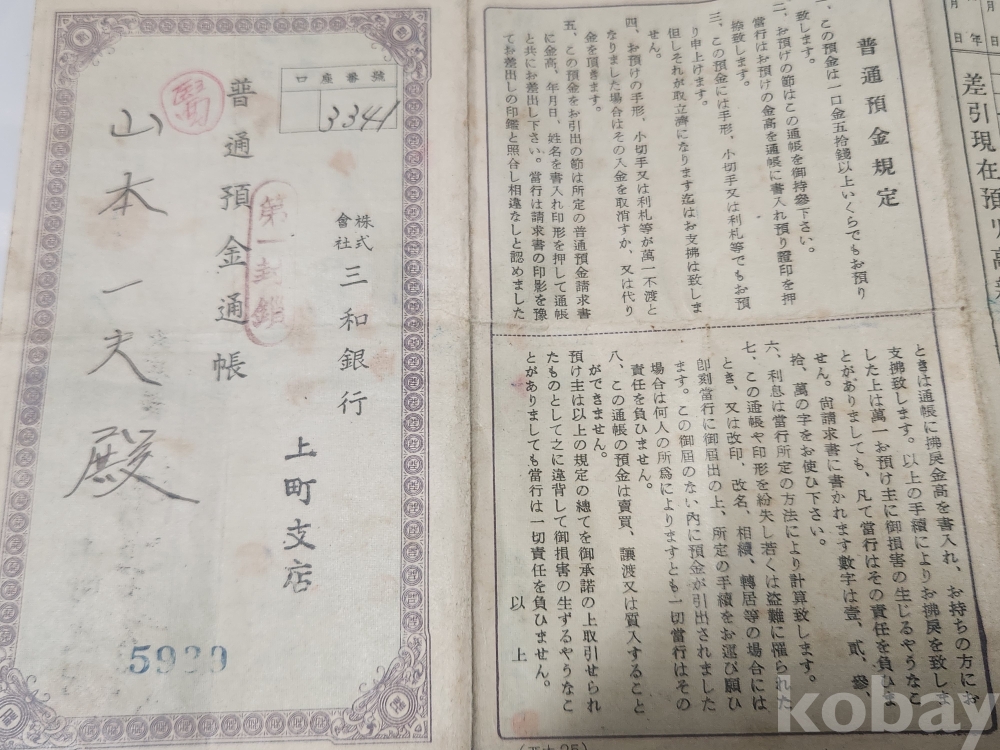 年
月
日
年
月
日
差引現在預リ高
普通預金規定
一、この預金は一口金五拾錢以上いくらでもお預り
致します。
二、お預けの節はこの通帳を御持參下さい。
當行はお預けの金高を通帳に書入れ預り證印を押
捺致します。
三、この預金には手形、小切手又は利札等でもお預
り申上げます。
但しそれが取立濟になります迄はお支拂は致しま
せん。
四、お預けの手形、小切手又は利札等が萬一不渡と
なりました場合はその入金を取消すか、又は代り
金を頂きます。
五、この預金をお引出の節は所定の普通預金請求書
に金高、年月日、姓名を書入れ印形を押して通帳
と共にお差出し下さい。當行は請求書の印影を豫
てお差出しの印鑑と照合し相違なしと認めました
ときは通帳に拂戻金高を書入れ、お持ちの方にお
支拂致します。以上の手續によりお拂戻を致しま
した上は萬一お預け主に御損害の生じるやうなこ
とがありましても、凡て當行はその責任を負ひま
せん。尚請求書に書かれます數字は壹、貳、參
拾、萬の字をお使ひ下さい。
六、利息は當行所定の方法により計算致します。
七、この通帳や印形を紛失し若くは盜難に罹られた
とき、又は改印、改名、相續、轉居等の場合には
卽刻當行に御屆出の上、所定の手續をお運び願ひ
ます。この御屆のない內に預金が引出されました
場合は何人の所爲によりますとも一切當行はその
責任を負ひません。
八、この通帳の預金は賣買、讓渡又は質入すること
ができません。
預け主は以上の規定の總てを御承諾の上取引せられ
たものとして之に違背して御損害の生ずるやうなこ
とがありましても當行は一切責任を負ひません。
以上
口座番號
3341
株式會社三和銀行
上町支店
普通預金通帳
第一封鎖
山本一夫殿
5939
kobay